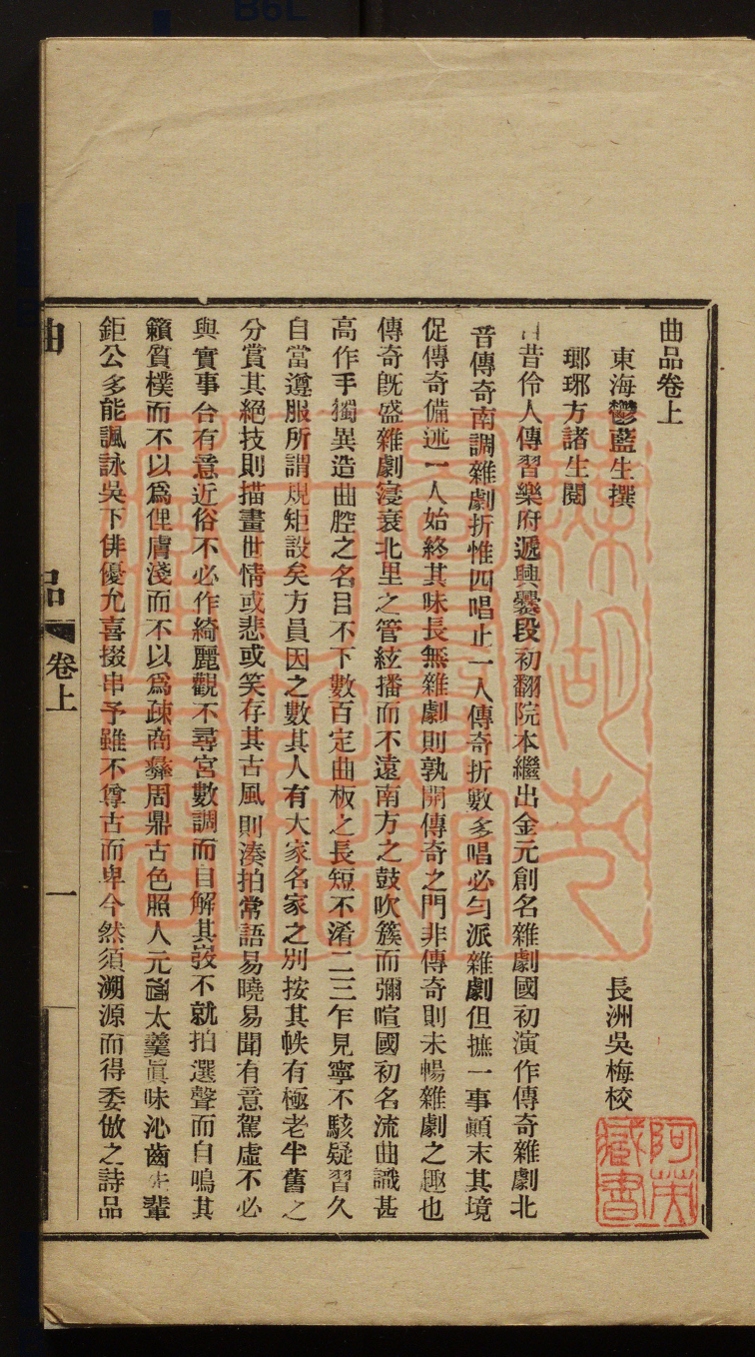 曲品卷上
東海鬱藍生撰 長洲吳梅校
瑯琊方諸生閱
昔伶人傳習樂府遞興爨段初翻院本繼出金元創名雜劇國初演作傳奇雜劇北
音傳奇南調雜劇折惟四唱止一人傳奇折數多唱必勻派雜劇但摭一事顚末其境
促傳奇備述一人始終其味長無雜劇則孰開傳奇之門非傳奇則未暢雜劇之趣也
傳奇旣盛雜劇寖衰北里之管絃播而不遠南方之鼓吹簇而彌喧國初名流曲識甚
高作手獨異造曲腔之名目不下數百定曲板之長短不淆二三乍見寧不駭疑習久
自當遵服所謂規矩設矣方員因之數其人有大家名家之別按其帙有極老半舊之
分賞其絕技則描畫世情或悲或笑存其古風則湊拍常語易曉易聞有意駕虛不必
與實事合有意近俗不必作綺麗觀不尋宮數調而自解其弢不就拍選聲而自鳴其
籟質樸而不以爲俚膚淺而不以爲疎商彝周鼎古色照人元酒太羹眞味沁齒先輩
鉅公多能諷詠吳下俳優尤喜掇串予雖不尊古而卑今然須溯源而得委倣之詩品
曲品
卷上
一
阿英
藏書